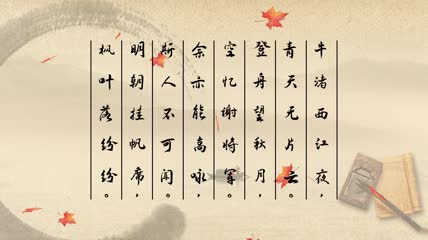 牛渚西江夜，
青天无片云。
登舟望秋月，
空忆谢将军。
余亦能高咏，
斯人不可闻。
明朝挂帆席，
枫叶落纷纷。